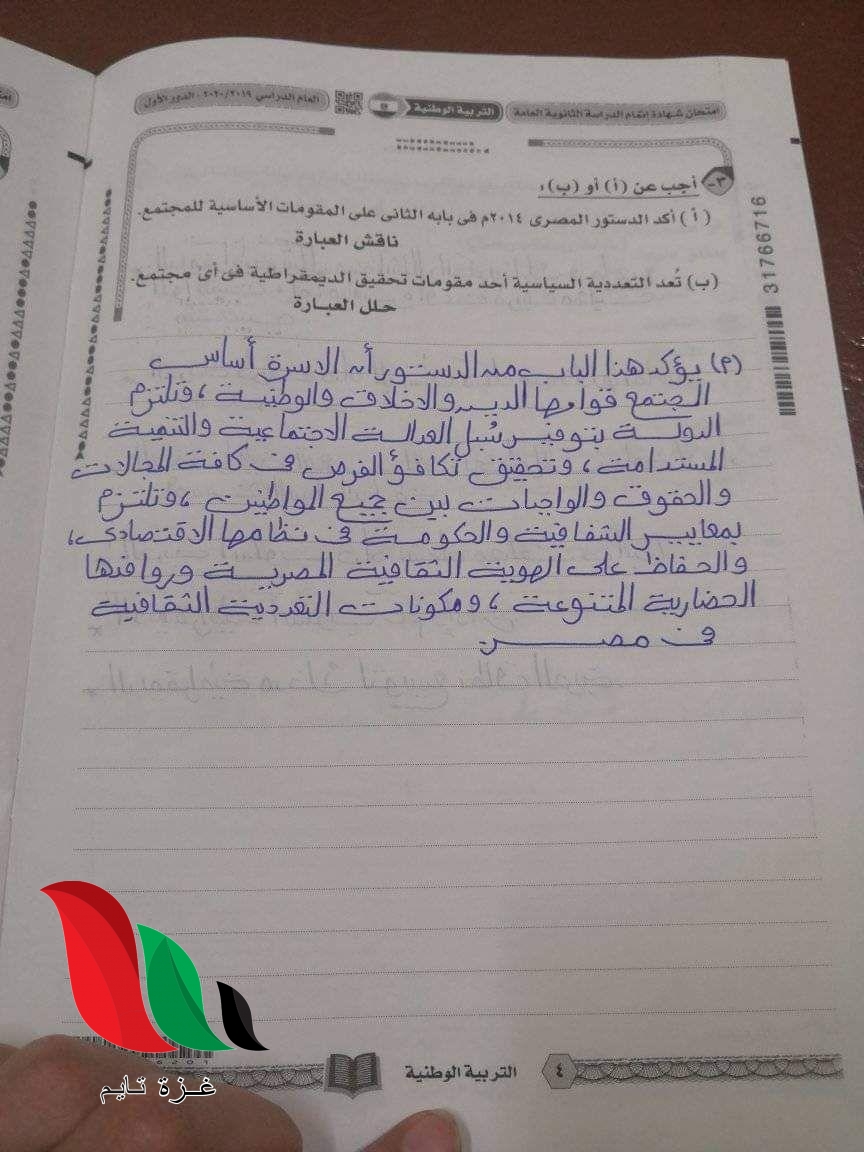 امتحان شهادة إتمام الدراسة الثانوية العامة
التربية الوطنية
العام الدراسي ٢٠٢٠/٢٠١٩ - الدور الأول
٣- أجب عن (أ) أو (ب):
(أ) أكد الدستور المصرى ٢٠١٤م فى بابه الثانى على المقومات الأساسية للمجتمع.
ناقش العبارة
(ب) تُعد التعددية السياسية أحد مقومات تحقيق الديمقراطية فى أى مجتمع.
حلل العبارة
31766716
(م) يؤكد هذا الباب من الدستور أن الاسرة أساس
المجتمع قوامها الدين والاخلاق والوطنية، وتلتزم
الدولة بتوفير سُبل العدالة الاجتماعية والتنمية
المستدامة، وتحقيق تكافؤ الفرص فى كافة المجالات
والحقوق والواجبات بين جميع المواطنين، وتلتزم
بمعايير الشفافية والحكومة فى نظامها الاقتصادى،
والحفاظ على الهوية الثقافية المصرية وروافدها
الحضارية المتنوعة، ومكونات التعددية الثقافية
فى مصر.
غزة تايم
التربية الوطنية
٤